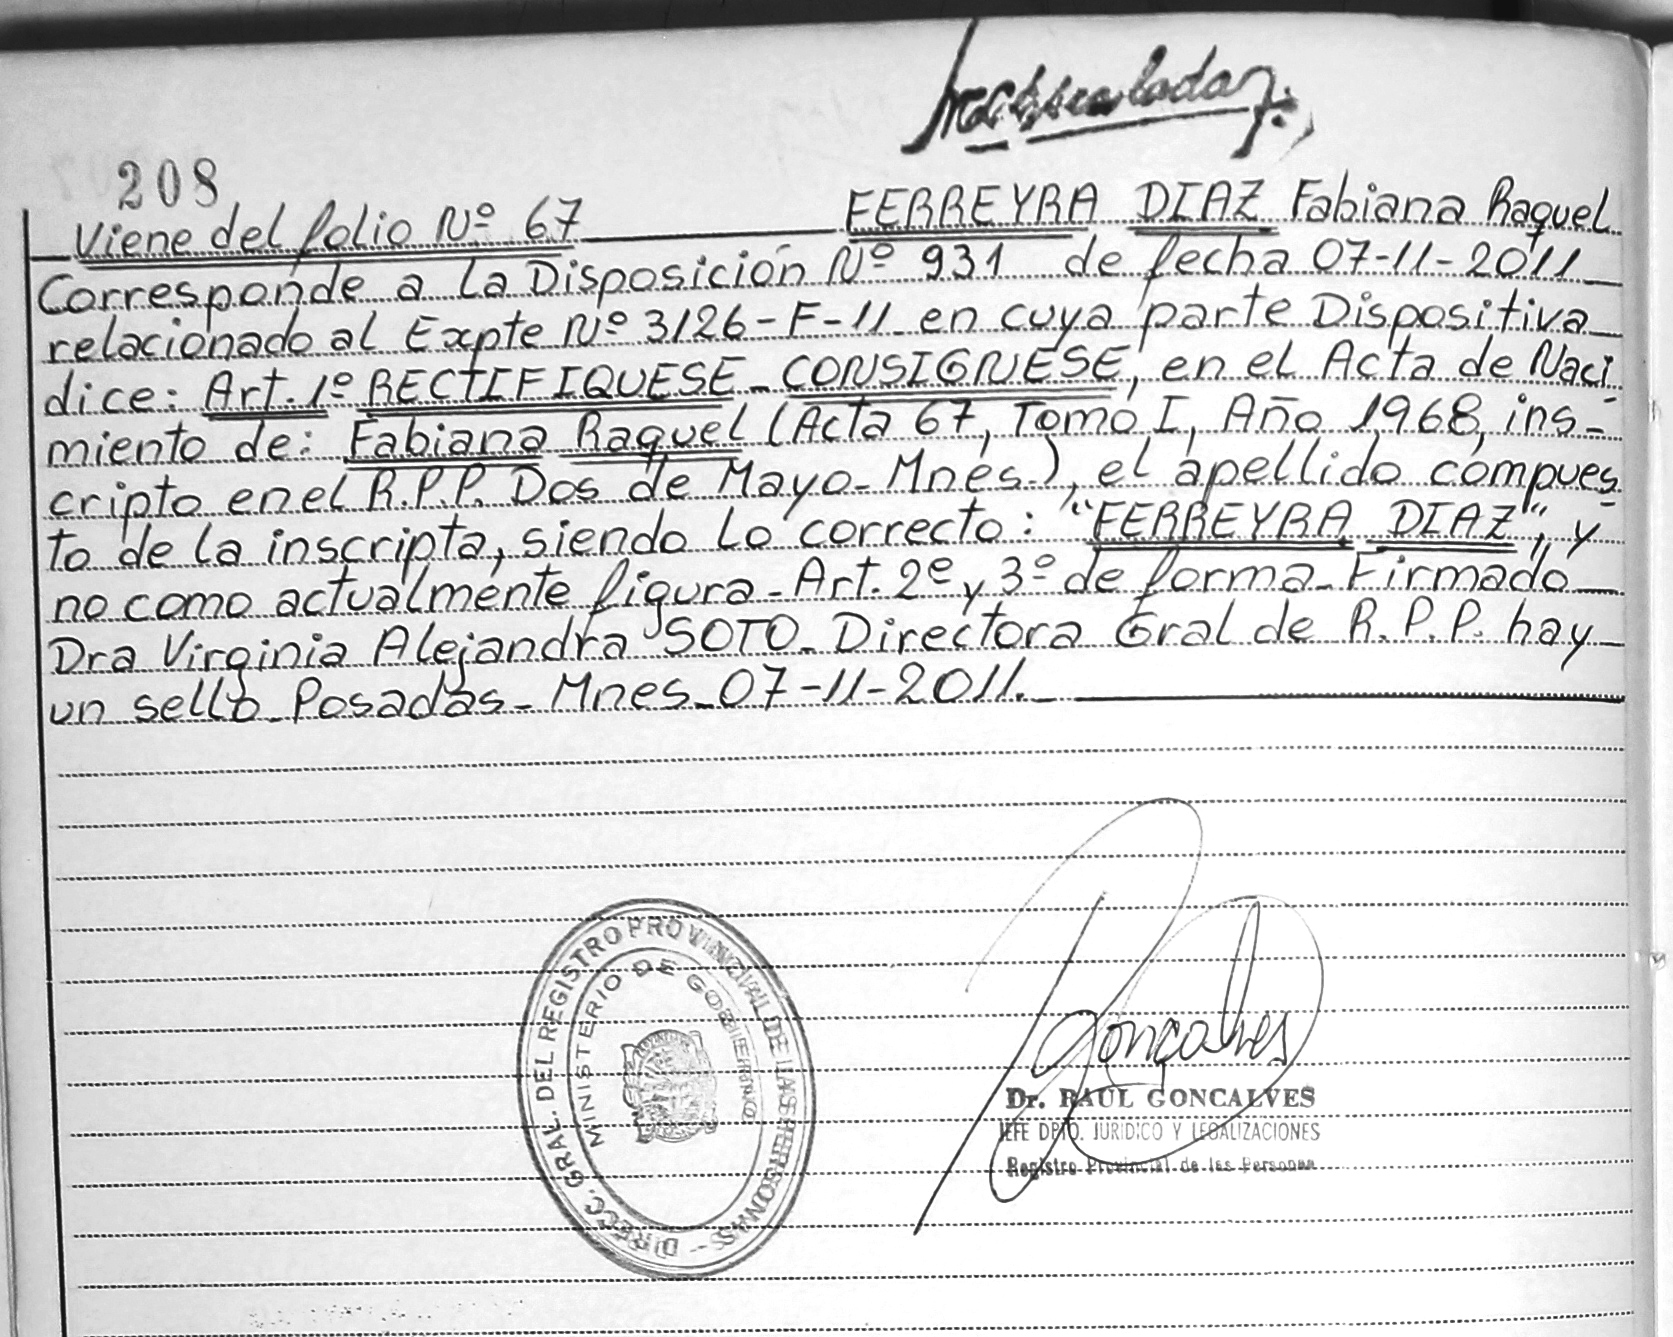 208
Viene del folio Nº 67 FERREYRA DIAZ Fabiana Raquel
Corresponde a la Disposición Nº 931 de fecha 07-11-2011
relacionado al Expte Nº 3126-F-11 en cuya parte Dispositiva
dice: Art. 1º RECTIFIQUESE - CONSIGNESE, en el Acta de Naci
miento de: Fabiana Raquel (Acta 67, Tomo I, Año 1968, ins-
cripto en el R.P.P. Dos de Mayo - Mnes.), el apellido compues
to de la inscripta, siendo lo correcto: "FERREYRA DIAZ", y
no como actualmente figura - Art. 2º y 3º de forma - Firmado
Dra Virginia Alejandra SOTO - Directora Gral de R.P.P. hay
un sello Posadas - Mnes - 07-11-2011.
DIRECC. GRAL. DEL REGISTRO PROVINCIAL DE LAS PERSONAS -
MINISTERIO DE GOBIERNO
Gonçalves
Dr. RAUL GONCALVES
JEFE DPTO. JURIDICO Y LEGALIZACIONES
Registro Provincial de las Personas